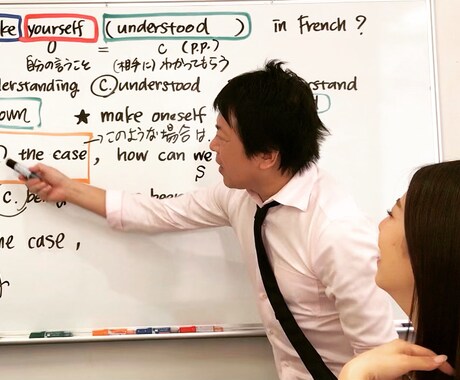 ke yourself (understood) in French?
O = C (p.p.)
自分の言うこと (相手に)わかってもらう
derstanding C. understood stand
own ★ make oneself
→このような場合は、
the case, how can we
S
C. be
he case,